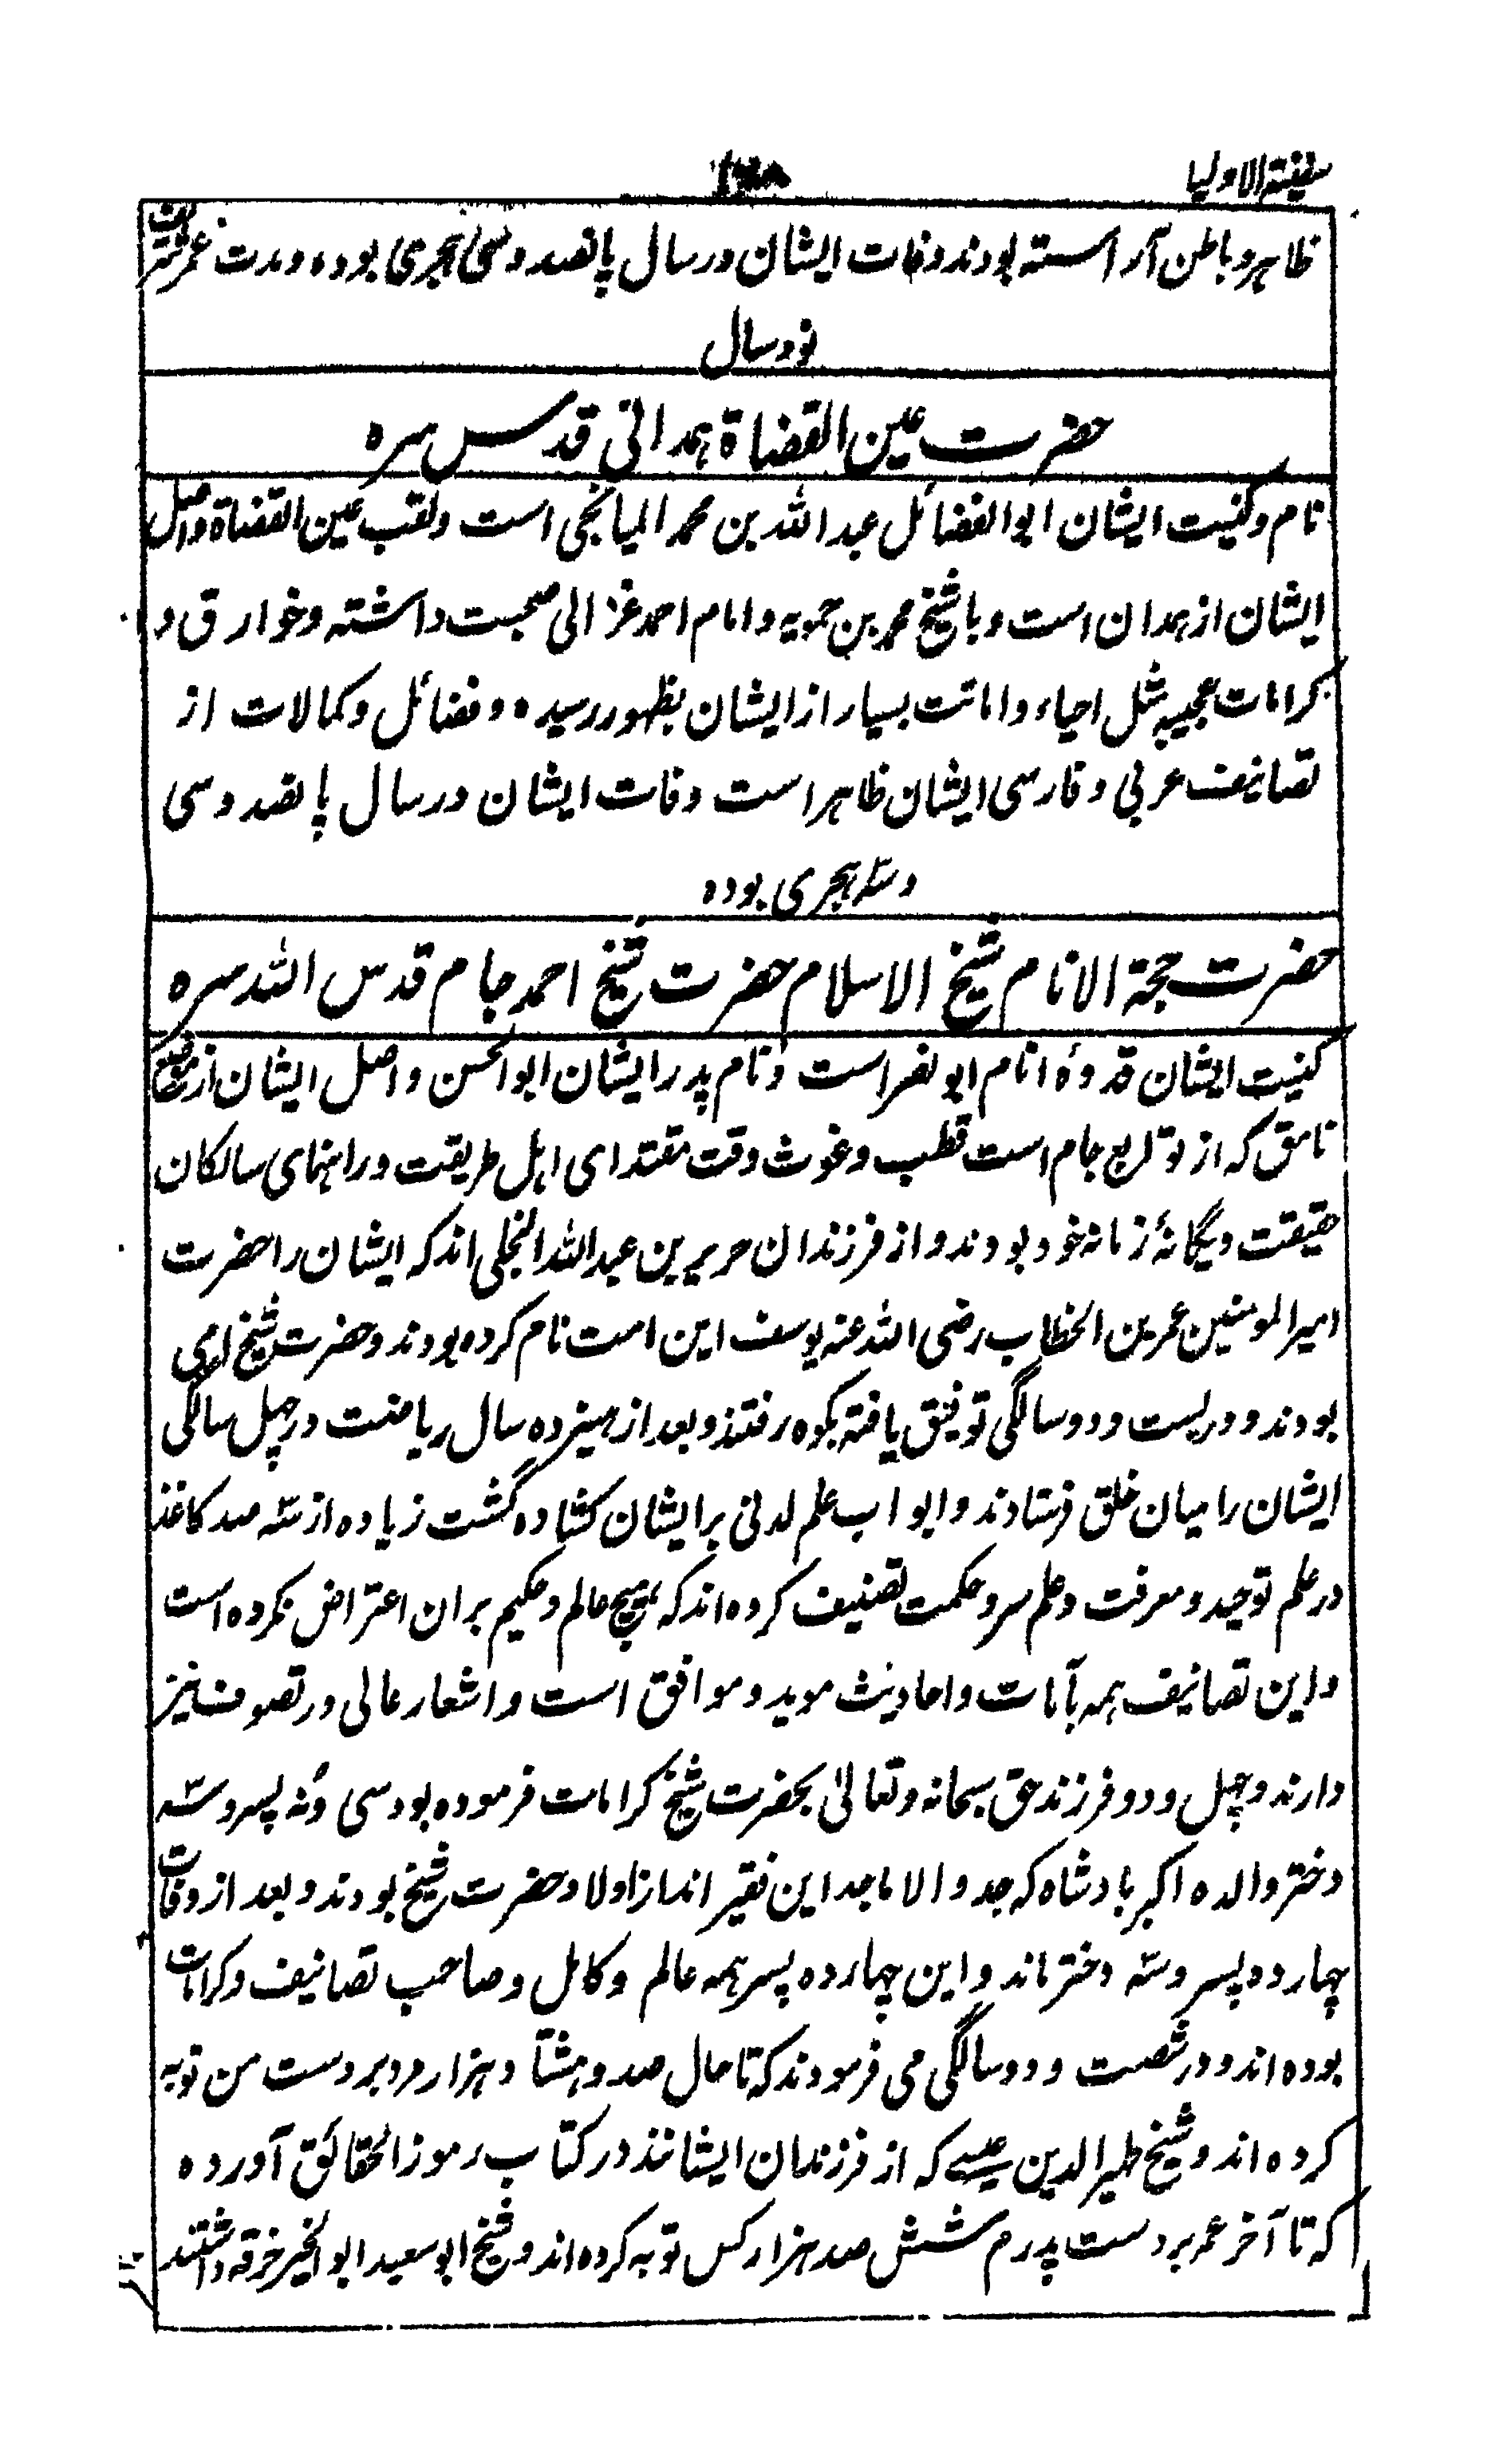 سفینة الاولیا
ظاهر و باطن آراسته بودند وفات ایشان در سال پانصد و سی هجری بوده و مدت عمر شریف
نود سال
حضرت عین القضاة همدانی قدس سره
نام و کنیت ایشان ابوالفضائل عبداللہ بن محمد المیانجی است و لقب عین القضاة و اصل
ایشان از همدان است و با شیخ محمد بن حمویه و امام احمد غزالی صحبت داشته و خوارق و
کرامات عجیبه مثل احیاء و اماتت بسیار از ایشان بظهور رسیده و فضائل و کمالات از
تصانیف عربی و فارسی ایشان ظاهر است وفات ایشان در سال پانصد و سی
و سه هجری بوده
حضرت حجة الانام شیخ الاسلام حضرت شیخ احمد جام قدس اللہ سره
کنیت ایشان قدوۀ انام ابو نصر است و نام پدر ایشان ابوالحسن و اصل ایشان از موضع
نامق که از توابع جام است قطب و غوث وقت مقتدای اهل طریقت و راهنمای سالکان
حقیقت و یگانۀ زمانه خود بودند و از فرزندان حریر بن عبداللہ البجلی اند که ایشان را حضرت
امیرالمومنین عمر بن الخطاب رضی اللہ عنه یوسف این امت نام کرده بودند و حضرت شیخ امی
بودند و در بست و دو سالگی توفیق یافته بکوه رفتند و بعد از هیزده سال ریاضت در چهل سالگی
ایشان را میان خلق فرستادند و ابواب علم لدنی بر ایشان کشاده گشت زیاده از سه صد کاغذ
در علم توحید و معرفت و علم سر و حکمت تصنیف کرده اند که هیچ عالم و حکیم بران اعتراض نکرده است
و این تصانیف همه بآیات و احادیث موید و موافق است و اشعار عالی در تصوف نیز
دارند و چهل و دو فرزند حق سبحانه و تعالیٰ بحضرت شیخ کرامات فرموده بود سی و نه پسر و سه
دختر والده اکبر بادشاه که جد والا ماجد این فقیر اند از اولاد حضرت شیخ بودند و بعد از وفات
چهارده پسر و سه دختر ماند و این چهارده پسر همه عالم و کامل و صاحب تصانیف و کرامات
بوده اند و در شصت و دو سالگی می فرمودند که تا حال صد و هشتاد هزار مرد بر دست من توبه
کرده اند و شیخ ظهیر الدین عیسی که از فرزندان ایشانند در کتاب رموز الحقائق آورده
که تا آخر عمر بر دست پدرم شش صد هزار کس توبه کرده اند و شیخ ابو سعید ابو الخیر خرقه داشتند